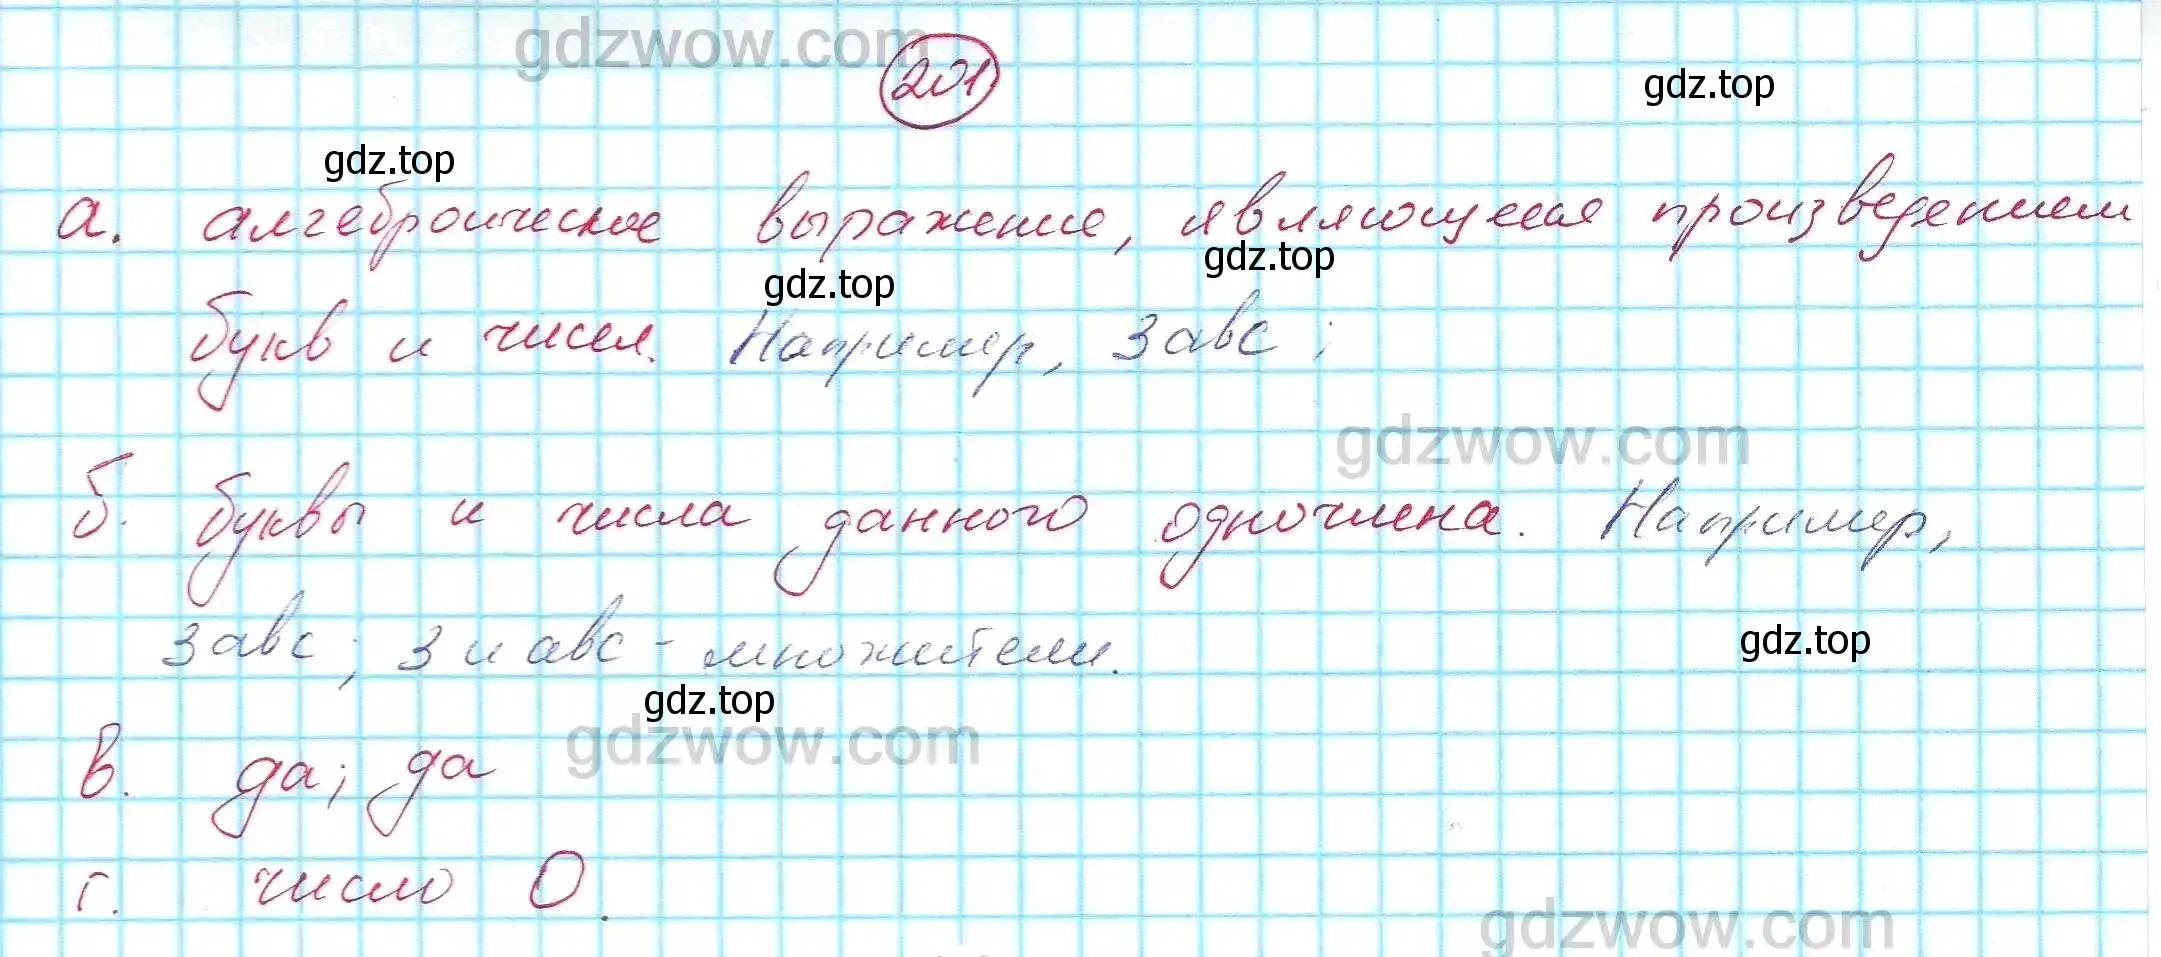 gdzwow.com
201
gdz.top
gdz.top
а. алгебраическое выражение, являющееся произведением
gdz.top
gdz.top
букв и чисел. Например, 3авс;
gdzwow.com
б. буквы и числа данного одночлена. Например,
3авс; 3 и авс - множители.
gdz.top
gdz.top
gdzwow.com
в. да; да
г. число 0.
gdzwow.com